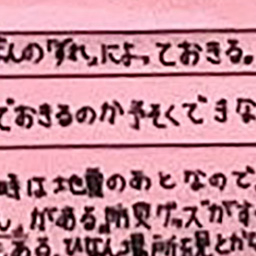 んの「ずれ」によっておきる。
でおきるのか予そくできな
時は地震のあとなので
がある。防災グッズがす
ある。ひなん場所を見とか